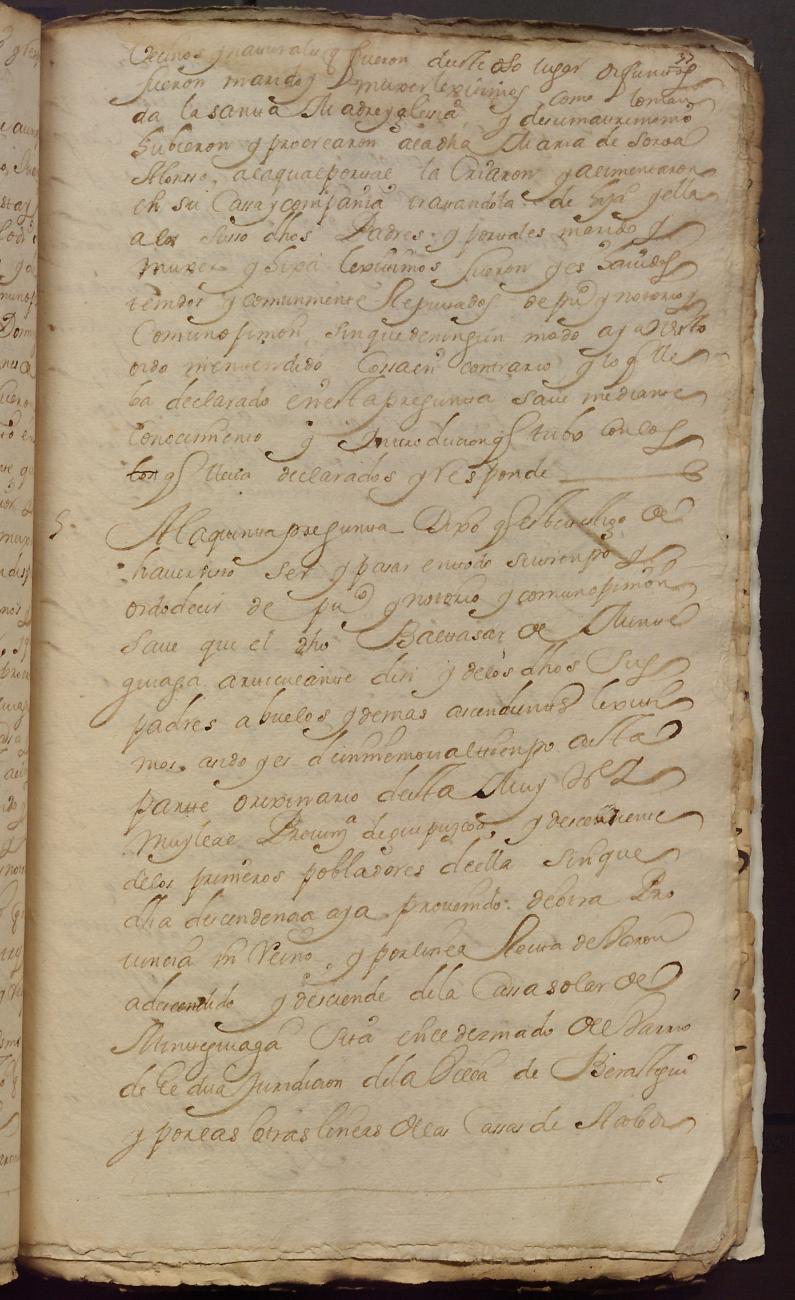 Vecinos y naturales q fueron deste dho lugar difuntos 33
fueron marido y muxer lexitimos como lo man
da la santa Madre yglesia, y de su matrimonio
hubieron y procrearon a la dha Maria de Soroa
Alonso, a la qual por tal la Criaron y alimentaron
en su Cassa y compania tratandola de hija y ella
a los suso dhos Padres y por tales marido y
muxer y hixa lexitimos fueron y es hauidos
tenidos y comunmente Reputados de puco y notorio
Comun opinion, sin que de ningun modo aya visto
oido ni entendido Cossa en contrario y lo q lle
ba declarado en esta pregunta saue mediante
conocimiento y Introducion q tubo con los
q lleua declarados y responde
5. A la quinta pregunta Dixo q este testigo de
hauer visto ser y pasar en todo su tienpo y
oido decir de puco y notorio y comun opinon
saue que el dho Baltasar de Minte
guiaga articulante de si y de los dhos sus
padres abuelos y demas ascendientes lexiti
mos, asido y es de inmemorial tienpo a esta
parte orixinario desta Muy Ne y
muy leal Prouinca de guipuzcoa, y descendiente
de los primeros pobladores de ella sin que
dha descendencia aya prouenido de otra Pro
uincia ni Reino, y por linea Recta de Baron
a descendido y desciende de la Cassa solar de
Minteguiaga sita en el dezmado del Barrio
de Eldua Juridicion de la Villa de Berastegui
y por las otras lineas de las Cassas de